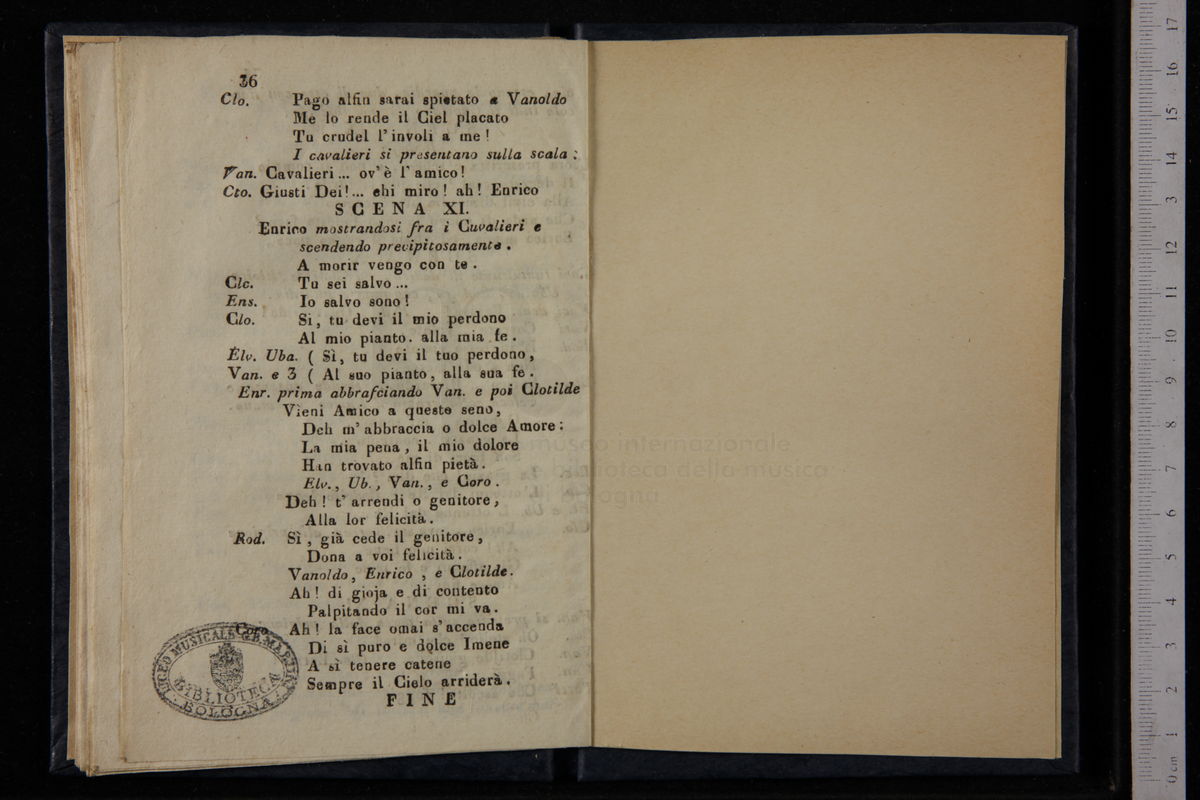 36
Clo. Pago alfin sarai spietato a Vanoldo
Me lo rende il Ciel placato
Tu crudel l'involi a me!
I cavalieri si presentano sulla scala:
Van. Cavalieri... ov'è l'amico!
Cto. Giusti Dei!... ehi miro! ah! Enrico
SCENA XI.
Enrico mostrandosi fra i Cuvalieri e
scendendo precipitosamente.
A morir vengo con te.
Clc. Tu sei salvo...
Ens. Io salvo sono!
Clo. Si, tu devi il mio perdono
Al mio pianto. alla mia fe.
Elv. Uba. ( Sì, tu devi il tuo perdono,
Van. e 3 ( Al suo pianto, alla sua fe.
Enr. prima abbrafciando Van. e poi Clotilde
Vieni Amico a questo seno,
Deh m'abbraccia o dolce Amore:
La mia pena, il mio dolore
Han trovato alfin pietà.
Elv., Ub., Van., e Coro.
Deh! t'arrendi o genitore,
Alla lor felicità.
Rod. Sì, già cede il genitore,
Dona a voi felicità.
Vanoldo, Enrico, e Clotilde.
Ah! di gioja e di contento
Palpitando il cor mi va.
Coro Ah! la face omai s'accenda
Di sì puro e dolce Imene
A sì tenere catene
Sempre il Cielo arriderà.
FINE
LICEO MUSICALE G.B. MARTINI
BIBLIOTECA
BOLOGNA
museo internazionale
e biblioteca della musica
di bologna
0 cm 1 2 3 4 5 6 7 8 9 10 11 12 13 14 15 16 17